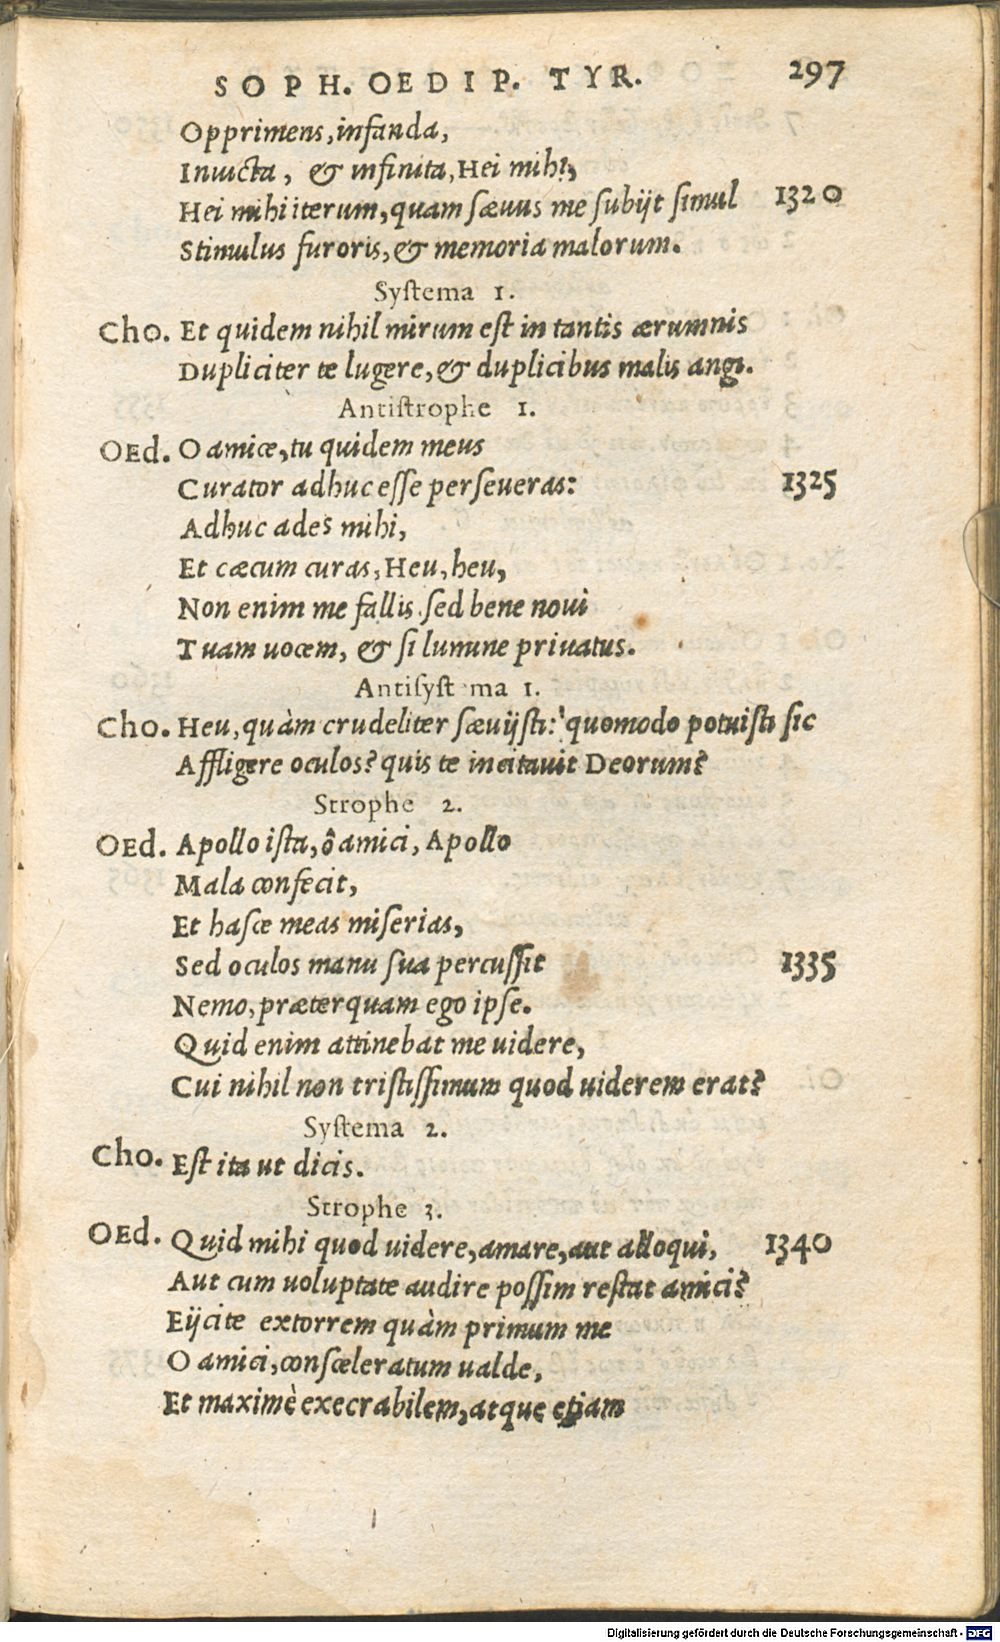 SOPH. OEDIP. TYR. 297
Opprimens, infanda,
Inuicta, & infinita, Hei mihi,
Hei mihi iterum, quam sæuus me subijt simul 1320
Stimulus furoris, & memoria malorum.
Systema 1.
Cho. Et quidem nihil mirum est in tantis ærumnis
Dupliciter te lugere, & duplicibus malis angi.
Antistrophe 1.
OEd. O amice, tu quidem meus
Curator adhuc esse perseueras: 1325
Adhuc ades mihi,
Et cæcum curas, Heu, heu,
Non enim me fallis. sed bene noui
Tuam uocem, & si lumine priuatus.
Antisystema 1.
Cho. Heu, quàm crudeliter sæuijsti: quomodo potuisti sic
Affligere oculos? quis te incitauit Deorum?
Strophe 2.
OEd. Apollo ista, ô amici, Apollo
Mala confecit,
Et hasce meas miserias,
Sed oculos manu sua percussit 1335
Nemo, præterquam ego ipse.
Quid enim attinebat me uidere,
Cui nihil non tristissimum quod uiderem erat?
Systema 2.
Cho. Est ita ut dicis.
Strophe 3.
OEd. Quid mihi quod uidere, amare, aut alloqui, 1340
Aut cum uoluptate audire possim restat amici?
Eijcite extorrem quàm primum me
O amici, consceleratum ualde,
Et maximè execrabilem, atque etiam
Digitalisierung gefördert durch die Deutsche Forschungsgemeinschaft - DFG